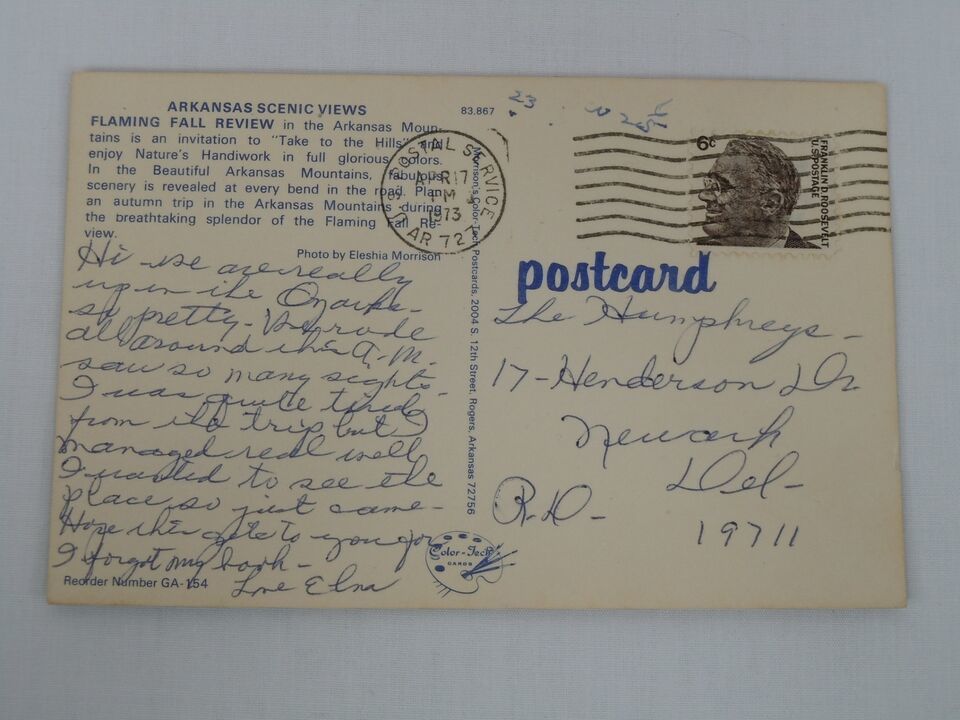 ARKANSAS SCENIC VIEWS
FLAMING FALL REVIEW in the Arkansas Moun-
tains is an invitation to "Take to the Hills" and
enjoy Nature's Handiwork in full glorious colors.
In the Beautiful Arkansas Mountains, fabulous
scenery is revealed at every bend in the road. Plan
an autumn trip in the Arkansas Mountains during
the breathtaking splendor of the Flaming Fall Re-
view.
Photo by Eleshia Morrison
83,867
Hi - we are really
up in the Ozarks -
so pretty - We rode
all around this A.M. -
saw so many sights -
I was quite tired
from the trip but I
managed real well
I wanted to see the
place so just came -
Hope this gets to you for
I forgot my book -
Love Elna
Reorder Number GA-154
Morrison's Color-Tech Postcards, 2004 S. 12th Street, Rogers, Arkansas 72756
Color-Tech
CARDS
U.S. POSTAL SERVICE
APR 17
PM
1973
AR 72
23
6c
FRANKLIN D. ROOSEVELT
U.S. POSTAGE
postcard
The Humphreys -
17 - Henderson Dr
Newark
Del -
R.D -
19711